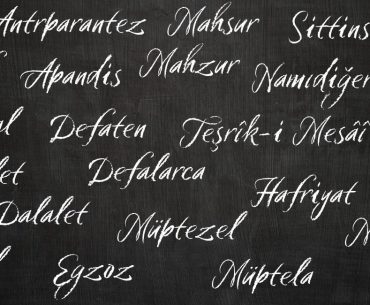 Antrparantez Mahsur Sittins
Apandis Mahzur Namıdiğer
Defaten Teşrîk-i Mesâî
Defalarca
Hafriyat
Dalalet
Müptezel
Egzoz Müptela